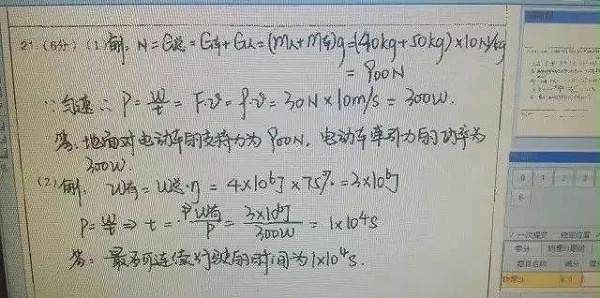 21. (6分) (1)解, N=G总=G车+G人=(m人+m车)g=(40kg+50kg)×10N/kg
=900N
∵匀速∴P=W/t=F·v=f·v=30N×10m/s=300W.
答:地面对电动车的支持力为900N,电动车牵引力的功率为
300W
(2)解, W有=W总·η=4×10⁶J×75%=3×10⁶J
P=W/t⇒t=W有/P=3×10⁶J/300W=1×10⁴s
答:最多可连续行驶的时间为1×10⁴s.